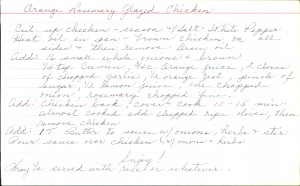 Orange Rosemary Glazed Chicken
Cut up chicken - season w/ Salt + White Pepper
Heat oil in pan - Brown chicken on all
sides & then remove. Drain oil
Add: 16 small whole onions & brown,
orange juice, 2 cloves
of chopped garlic, orange zest, pinch of
sugar, lemon juice, one chopped
onion, rosemary chopped fine.
Add: Chicken back, cover & cook 10-15 min.
almost cooked add chopped ripe olives, then
remove chicken
Add: 1 T. Butter to sauce w/ onions, herbs & stir
Pour sauce over chicken w/ onions & herbs
Enjoy!
May be served with rice or whatever.